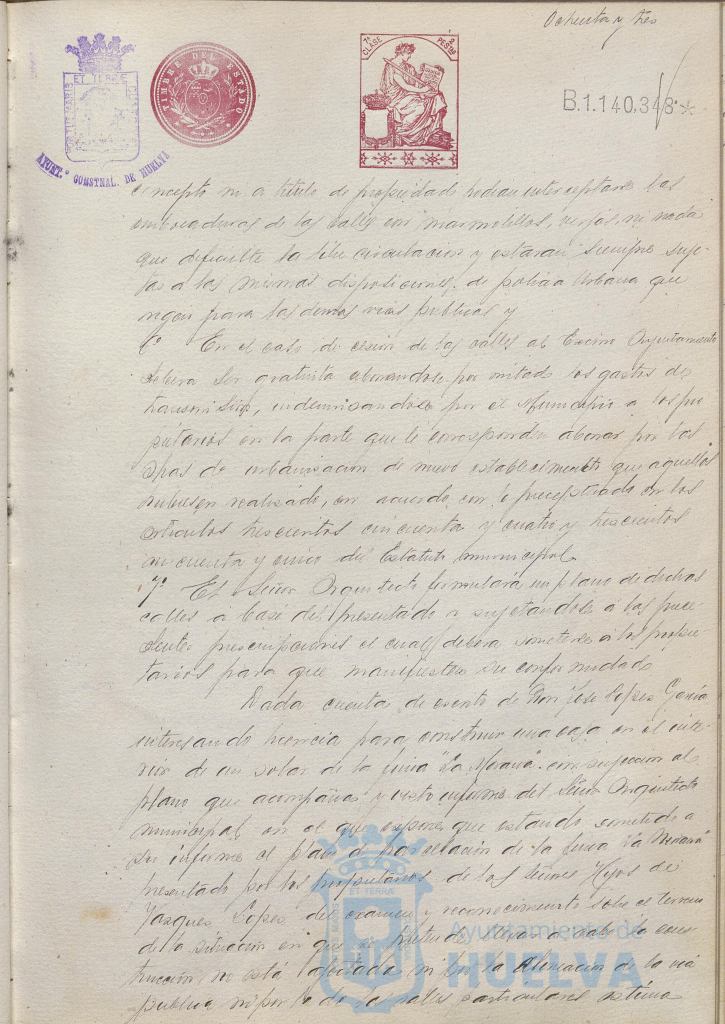 Ochenta y tres
PORTUS MARIS ET TERRE CUSTODIA
AYUNT.º CONSTNAL. DE HUELVA
TIMBRE DEL ESTADO
7ª CLASE 2 PESTAS
B.1.140,348 *
concepto ni a título de propiedad podian interceptarse las
embocaduras de las calles con marmolillos, verjas, ni nada
que dificulte la libre circulacion y estarán siempre suje-
tas á las mismas disposiciones de policia Urbana que
rigen para las demas vias publicas y
6º En el caso de cesión de las calles al Excmo Ayuntamiento
debera ser gratuita abonandose por mitad los gastos de
transmisión, indemnizandose por el Municipio a los pro-
pietarios en la parte que le corresponden abonar por las
obras de urbanizacion de nuevo establecimiento que aquellos
hubiesen realizado, en acuerdo con lo preceptuado en los
articulos trescientos cincuenta y cuatro y trescientos
cincuenta y cinco del Estatuto municipal.
7º El Señor Arquitecto formulará un plano de dichas
calles á base del presentado y sujetándole á las prece-
dentes prescripciones el cual debera someterse á los propie-
tarios para que manifiesten su conformidad
Dada cuenta de escrito de Don José Lopez Garcia
interesando licencia para construir una casa en el inte-
rior de un solar de la finca "La Morana" con sujecion al
plano que acompaña y visto informe del Señor Arquitecto
municipal en el que expone que estando sometido a
su informe el plano de parcelación de la finca "La Morana"
presentado por los propietarios de los Señores Hijos de
Vazquez Lopez del examen y reconocimiento sobre el terreno
de la situación en que se pretende llevar a cabo la cons-
trucción, no está afectada ni por la alineacion de la via
publica ni por la de la calles particulares estima
ET TERRA
Ayuntamiento de
HUELVA